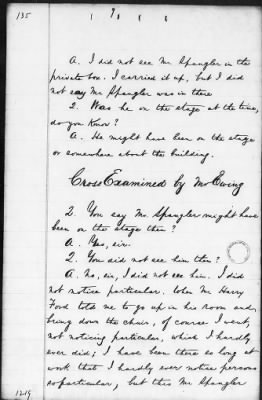 135
A. I did not see Mr Spangler in the
private box. I carried it up, but I did
not say Mr Spangler was in there
Q. Was he on the stage at the time,
do you know?
A. He might have been on the stage
or somewhere about the building.
Cross Examined by Mr Ewing
Q. You say Mr. Spangler might have
been on the stage then?
A. Yes, sir.
Q. You did not see him then?
A. No, sir, I did not see him. I did
not notice particular. When Mr Harry
Ford told me to go up in his room and
bring down the chair, of course I went,
not noticing particular, which I hardly
ever did; I have been there so long at
work that I hardly ever notice persons
so particular, but this Mr Spangler
1219